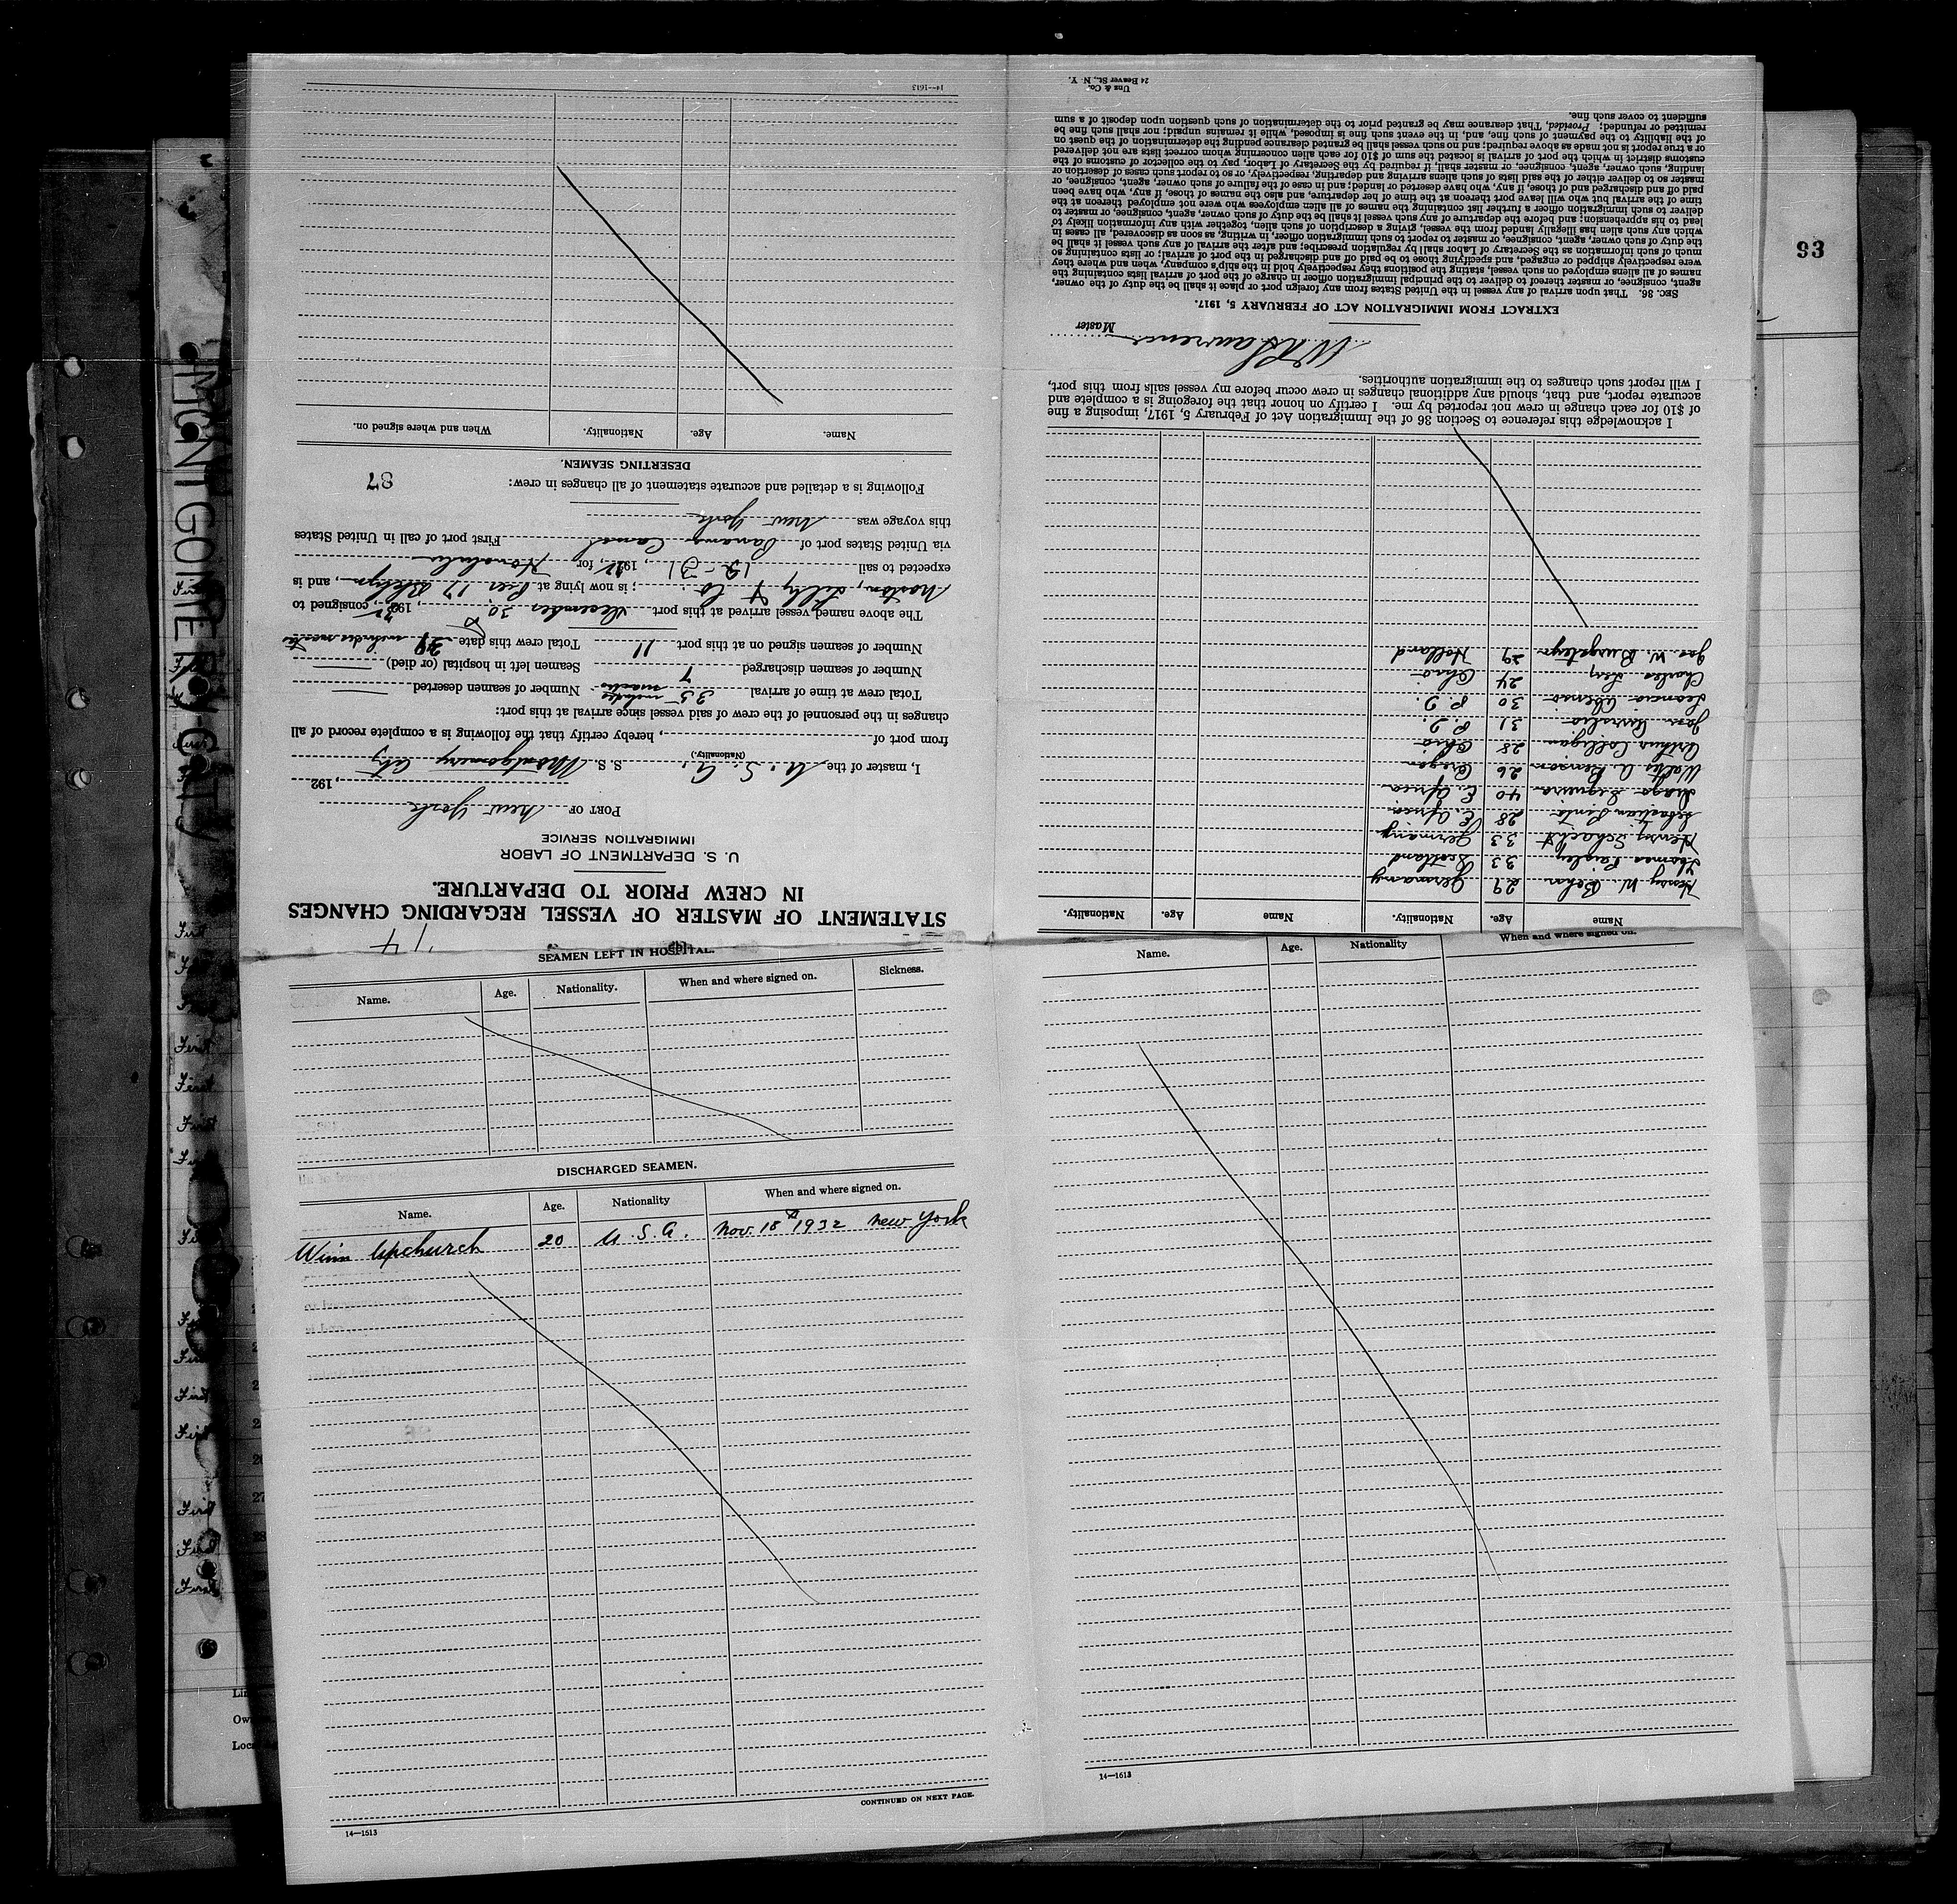 STATEMENT OF MASTER OF VESSEL REGARDING CHANGES
IN CREW PRIOR TO DEPARTURE.
U. S. DEPARTMENT OF LABOR
IMMIGRATION SERVICE
PORT OF New York
, 192
I, master of the U. S. A. S. S. Montgomery City
(Nationality.)
from port of , hereby certify that the following is a complete record of all
changes in the personnel of the crew of said vessel since arrival at this port:
Total crew at time of arrival 35 includes master Number of seamen deserted
Number of seamen discharged 7 Seamen left in hospital (or died)
Number of seamen signed on at this port 11 Total crew this date 39 includes master
The above named vessel arrived at this port December 30, 1932, consigned to
Norton, Lilly & Co. ; is now lying at Pier 17 Bklyn, and is
expected to sail 12-31, 192 , for Honolulu
via United States port of Panama Canal First port of call in United States
this voyage was New York
Following is a detailed and accurate statement of all changes in crew:
87
DESERTING SEAMEN.
Name. Age. Nationality. When and where signed on.
14—1613
SEAMEN LEFT IN HOSPITAL.
Name. Age. Nationality. When and where signed on. Sickness.
DISCHARGED SEAMEN.
Name. Age. Nationality When and where signed on.
Winn Upchurch 20 U. S. A. Nov. 18 1932 New York
CONTINUED ON NEXT PAGE.
14—1613
Name. Age. Nationality When and where signed on.
14—1613
Name Age. Nationality. Name Age. Nationality.
Henry W. Behn 29 Germany
Thomas Paisley 33 Scotland
Henry Schacht 33 Germany
Sebastian Pinto 28 E. Africa
40 E. Africa
Walter A. Benison 26 Oregon
Arthur Colligan 28 Ohio
Jose 31 P. I.
Leoncio Asensio 30 P. I.
Charles Levy 24 Ohio
Jas. W. 29 Holland
I acknowledge this reference to Section 36 of the Immigration Act of February 5, 1917, imposing a fine
of $10 for each change in crew not reported by me. I certify on honor that the foregoing is a complete and
accurate report, and that, should any additional changes in crew occur before my vessel sails from this port,
I will report such changes to the immigration authorities.
Lawrence
Master
EXTRACT FROM IMMIGRATION ACT OF FEBRUARY 5, 1917.
SEC. 36. That upon arrival of any vessel in the United States from any foreign port or place it shall be the duty of the owner,
agent, consignee, or master thereof to deliver to the principal immigration officer in charge of the port of arrival lists containing the
names of all aliens employed on such vessel, stating the positions they respectively hold in the ship's company, when and where they
were respectively shipped or engaged, and specifying those to be paid off and discharged in the port of arrival; or lists containing so
much of such information as the Secretary of Labor shall by regulation prescribe; and after the arrival of any such vessel it shall be
the duty of such owner, agent, consignee, or master to report to such immigration officer, in writing, as soon as discovered, all cases in
which any such alien has illegally landed from the vessel, giving a description of such alien, together with any information likely to
lead to his apprehension; and before the departure of any such vessel it shall be the duty of such owner, agent, consignee, or master to
deliver to such immigration officer a further list containing the names of all alien employees who were not employed thereon at the
time of the arrival but who will leave port thereon at the time of her departure, and also the names of those, if any, who have been
paid off and discharged and of those, if any, who have deserted or landed; and in case of the failure of such owner, agent, consignee, or
master so to deliver either of the said lists of such aliens arriving and departing, respectively, or so to report such cases of desertion or
landing, such owner, agent, consignee, or master shall, if required by the Secretary of Labor, pay to the collector of customs of the
customs district in which the port of arrival is located the sum of $10 for each alien concerning whom correct lists are not delivered
or a true report is not made as above required; and no such vessel shall be granted clearance pending the determination of the quest on
of the liability to the payment of such fine, and, in the event such fine is imposed, while it remains unpaid; nor shall such fine be
remitted or refunded; Provided, That clearance may be granted prior to the determination of such question upon deposit of a sum
sufficient to cover such fine.
Unz & Co.
24 Beaver St., N. Y.
93
MONTGOMERY CITY
First
First
First
First
First
First
First
First
27
28